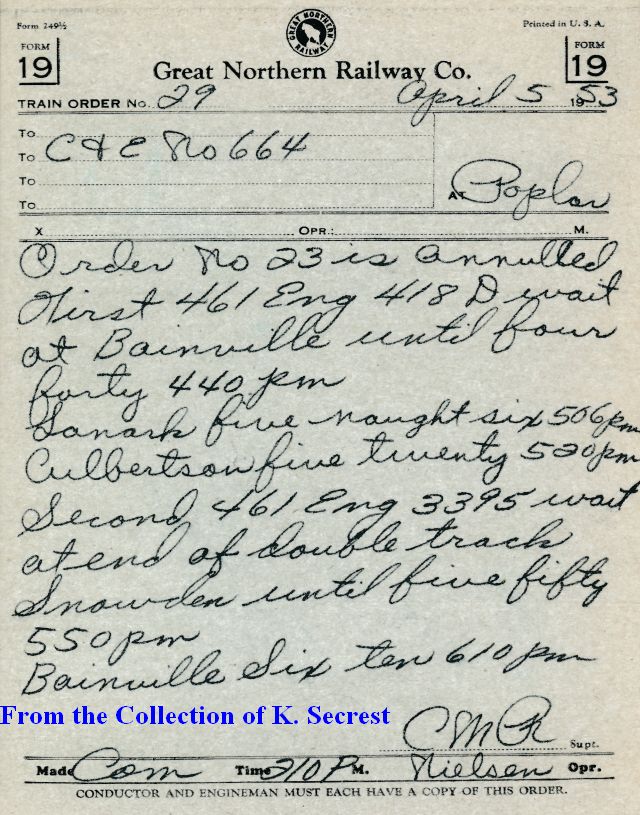 Form 249½ Printed in U. S. A.
GREAT NORTHERN RAILWAY
FORM 19 FORM 19
Great Northern Railway Co.
TRAIN ORDER No. 29 April 5 1953
To
To C & E No 664
To
To
AT Poplar
X OPR.: M.
Order No 23 is annulled
First 461 Eng 418 D wait
at Bainville until four
forty 440 pm
Lanark five naught six 506 pm
Culbertson five twenty 520 pm
Second 461 Eng 3395 wait
at end of double track
Snowden until five fifty
550 pm
Bainville Six ten 610 pm
From the Collection of K. Secrest
CMR Supt.
Made Com Time 210 P M. Nielsen Opr.
CONDUCTOR AND ENGINEMAN MUST EACH HAVE A COPY OF THIS ORDER.